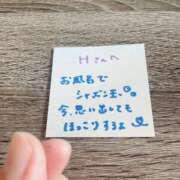 Hさんへ
お風呂で
シャズン玉、
今、思い出しても
ほっこりするよ